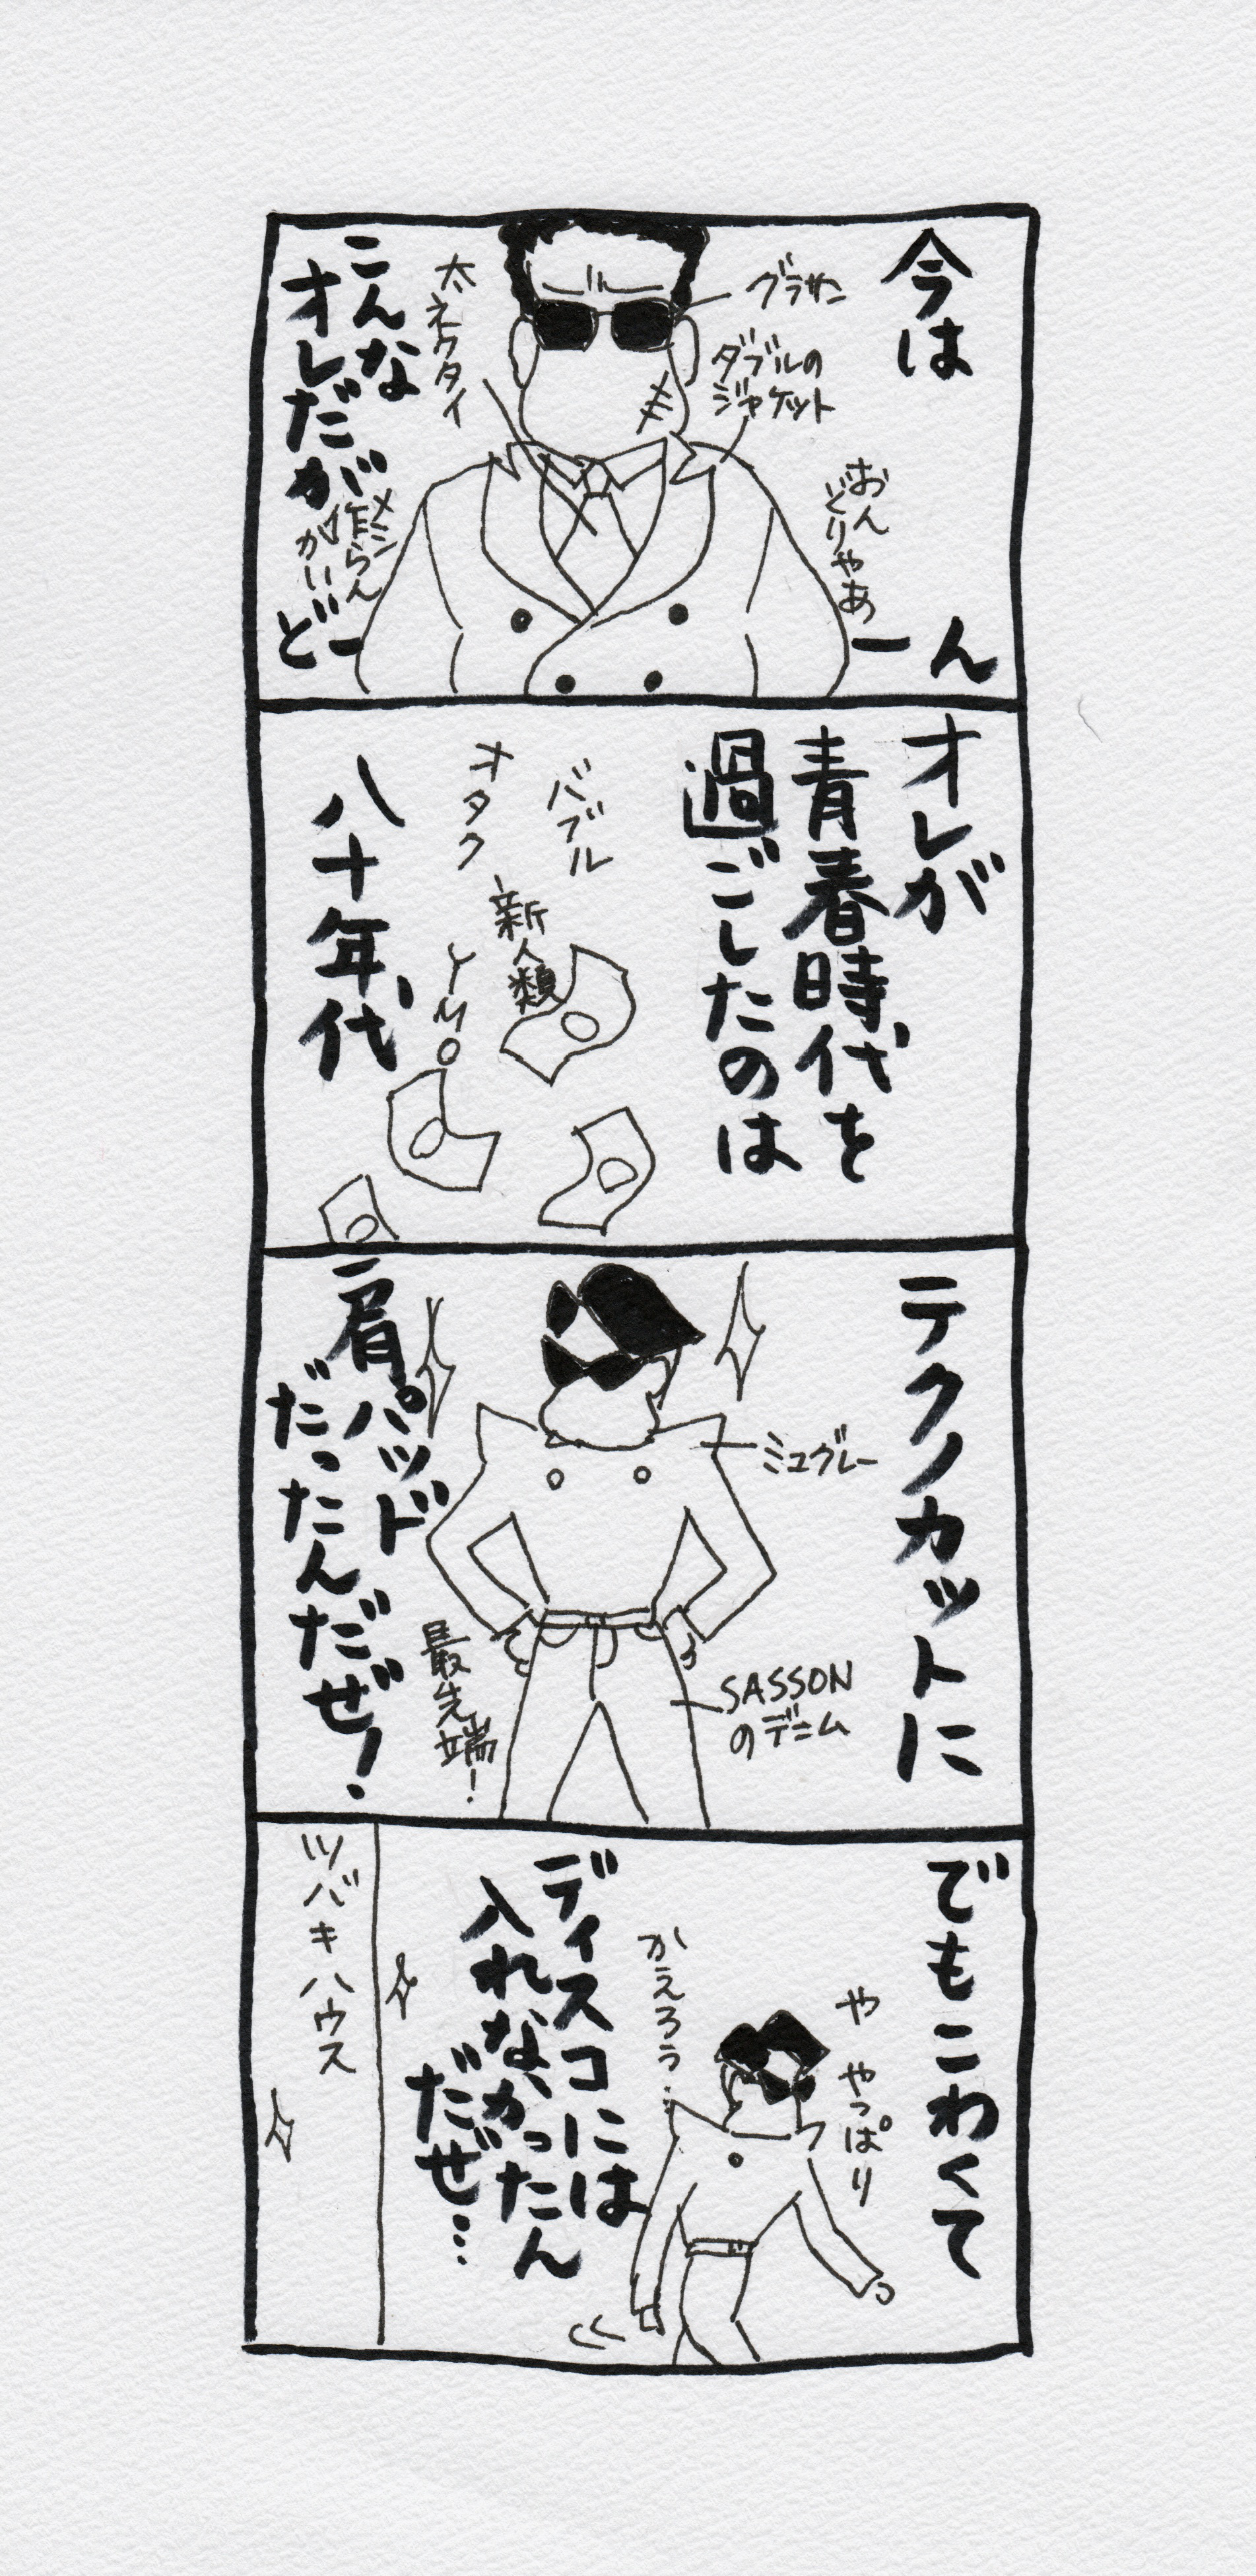 今は
グラサン
ダブルの
ジャケット
おんどりゃあ
太ネクタイ
こんな
オレだが
どーん
オレが
青春時代を
過ごしたのは
バブル
オタク
新人類
YMO
八十年代
テクノカットに
ミュグレー
SASSON
のデニム
最先端!
肩パッド
だったんだぜ!
でもこわくて
や やっぱり
かえろう…
ディスコには
入れなかったん
だぜ…
ツバキハウス